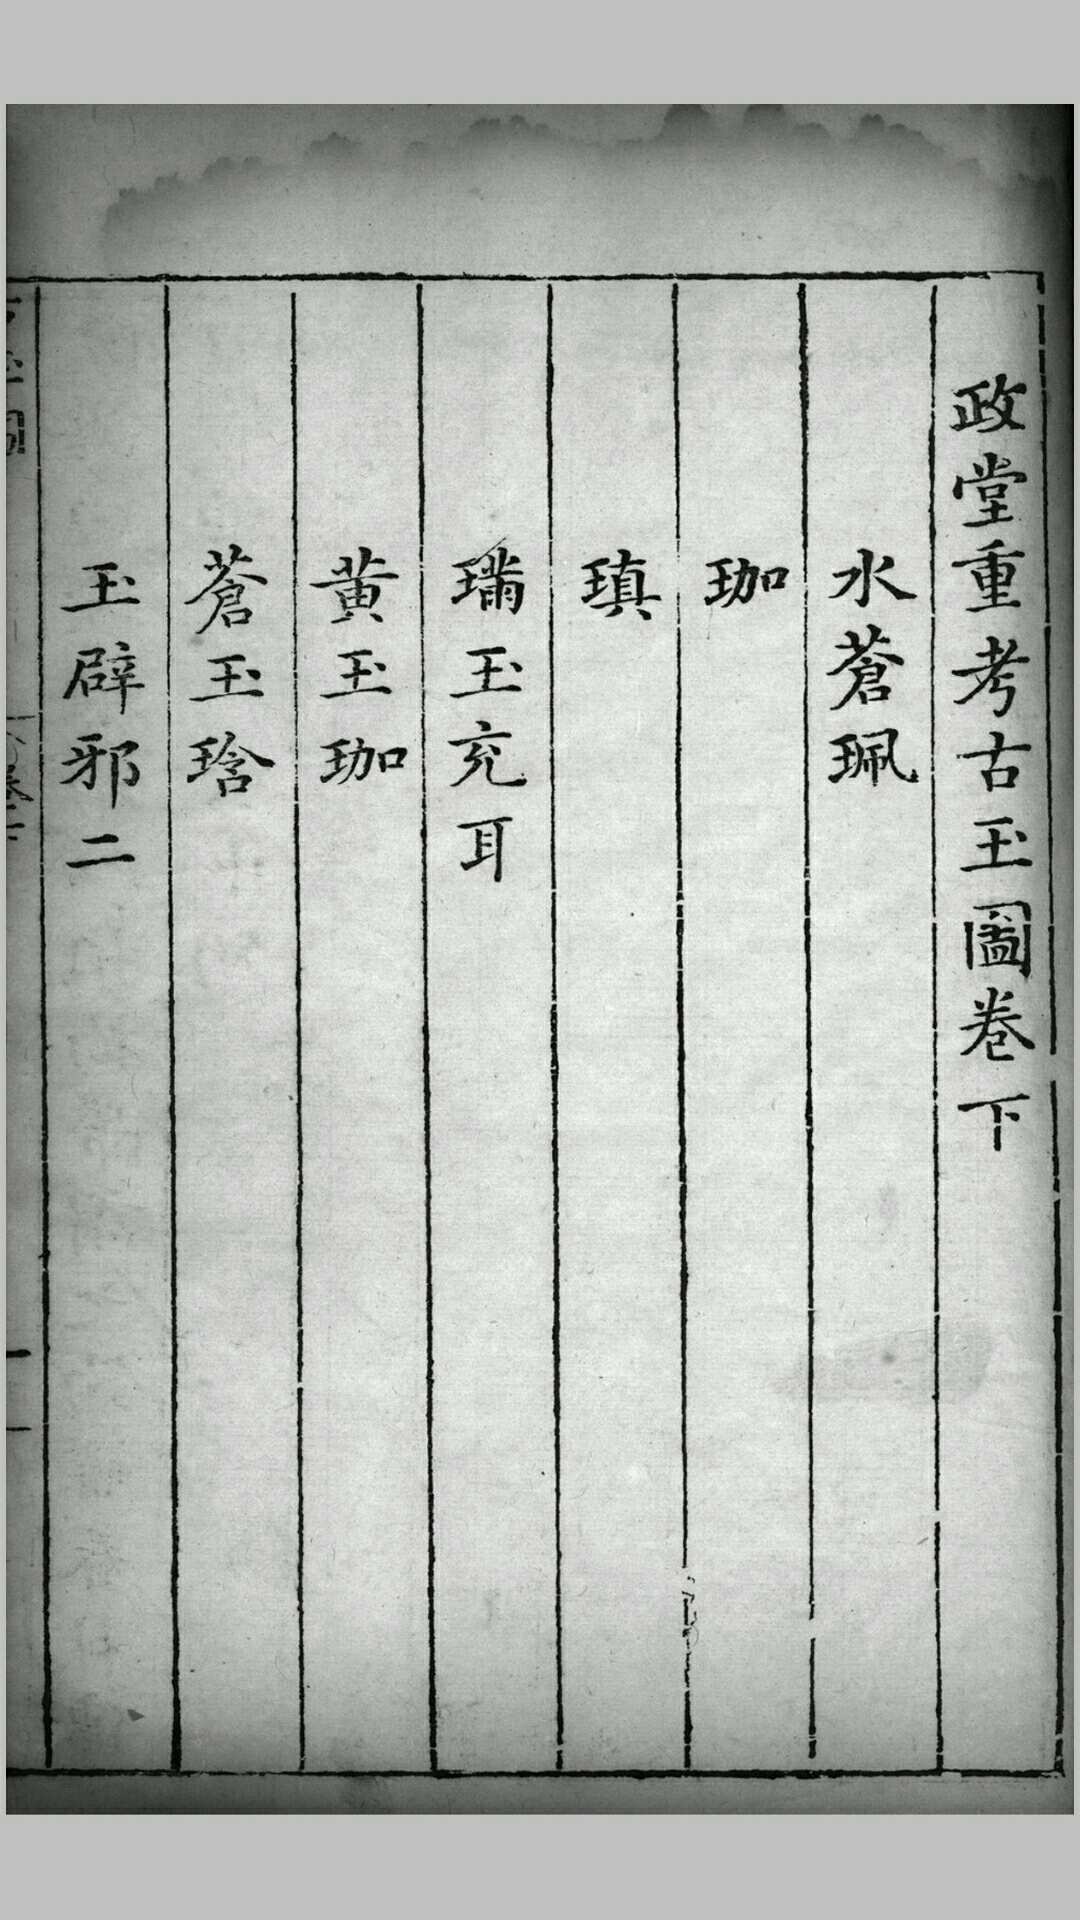 政堂重考古玉圖卷下
水蒼珮
珈
瑱
璊玉充耳
黄玉珈
蒼玉琀
玉辟邪二